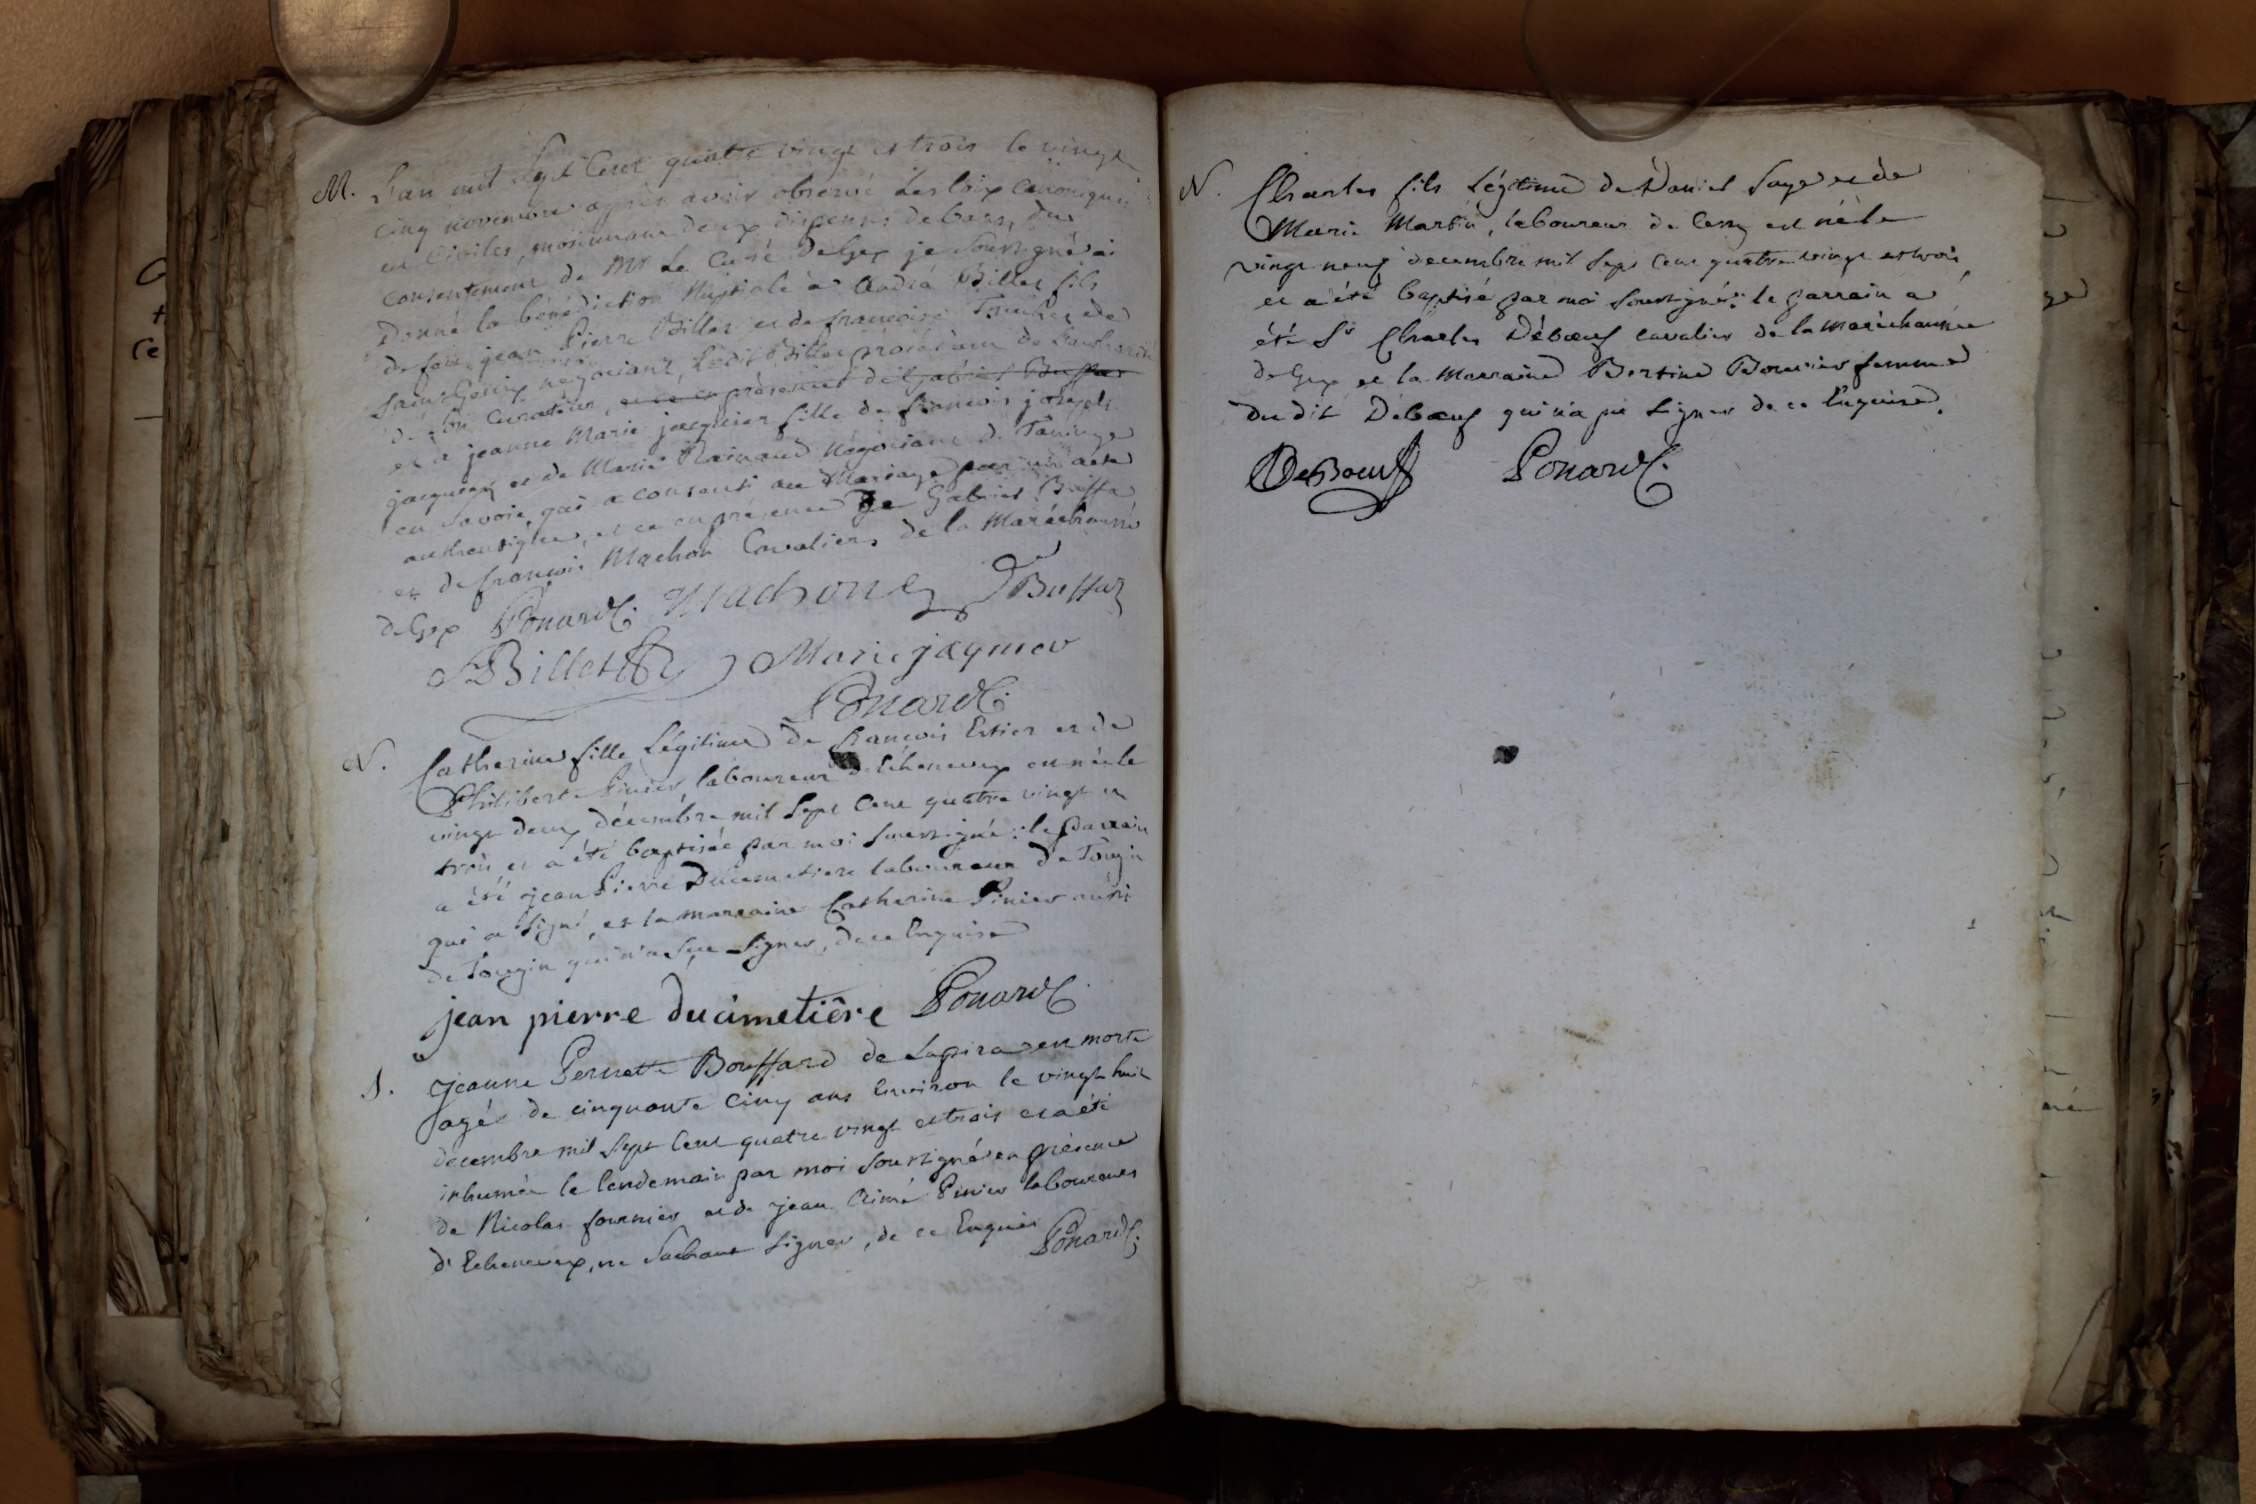 M. L'an mil Sept Cent quatre vingt et trois le vingt
cinq novembre après avoir observé Les loix Canoniques
et Civiles, moiennant deux dispenses de bans, du
consentement de Mr Le Curé de Gex je Soussigné ai
Donné la bénédiction Nuptiale à André Billet fils
de feu jean Pierre Billet et de françoise
négociant, Ledit Billet procédant de
de son Curateur, et ce en présence de Gabriel Buffaz
et a jeanne Marie jacquier fille de françois joseph
jacquier et de Marie Rainaud Négociant de Taninge
en Savoie, qui a consenti au Mariage par un acte
authentique, et ce en présence de Gabriel Buffaz
et de françois Machon Cavaliers de la Maréchaussée
de Gex Ponard C. Machon Buffaz
A Billet Marie jaquier
Ponard C.
N. Catherine fille Légitime de françois Estier et de
Philiberte Pinier, laboureur d'Echenevex est née le
vingt deux décembre mil Sept Cent quatre vingt et
trois et a été baptisée par moi Soussigné : le parrain
a été jean Pierre Ducimetiere laboureur de Tougin
qui a signé, et la marraine Catherine Pinier aussi
de Tougin qui n'a Sçu Signer, de ce Enquise
jean pierre ducimetiêre Ponard C.
S. jeanne Pernette Bouffard de est morte
agée de cinquante cinq ans Environ le vingt huit
decembre mil Sept Cent quatre vingt et trois et a été
inhumée le lendemain par moi Soussigné en présence
de Nicolas fournier et de jean Aimé Pinier laboureurs
d'Echenevex, ne Sachant Signer, de ce Enquis Ponard C.
N. Charles fils Légitime de Daniel Sage et de
Marie Martin, laboureur de Cessy est né le
vingt neuf decembre mil Sept Cent quatre vingt et trois
et a été baptisé par moi Soussigné : le parrain a
été Sr Charles Débœuf cavalier de la Maréchaussée
de Gex et la Marraine Bertine Bouvier femme
du dit Débœuf qui n'a pu Signer de ce Enquise.
DeBoeuf Ponard C.